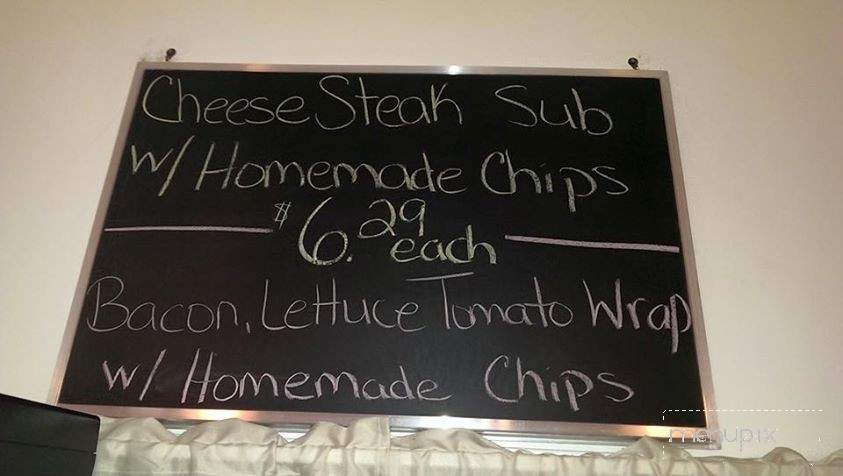 Cheese Steak Sub
w/ Homemade Chips
$6.29
each
Bacon, Lettuce Tomato Wrap
w/ Homemade Chips
menupix